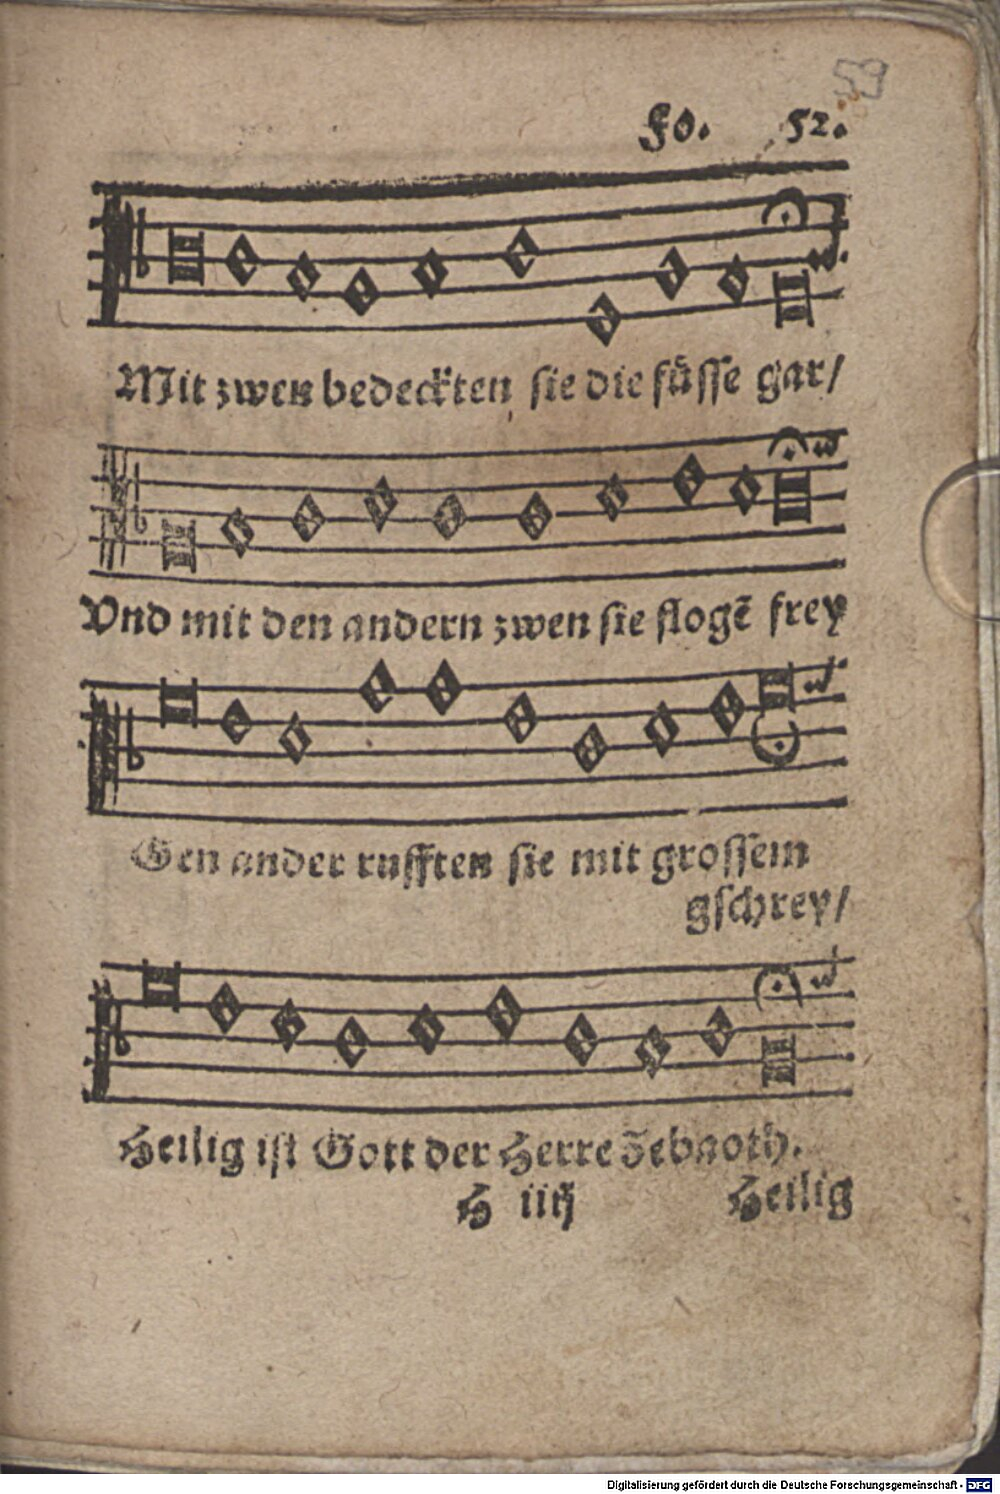 59
Fo. 52.
Mit zwen bedeckten sie die füsse gar/
Vnd mit den andern zwen sie flogē frey
Gen ander rufften sie mit grossem
gschrey/
Heilig ist Gott der Herre Zebaoth.
H iiij Heilig
Digitalisierung gefördert durch die Deutsche Forschungsgemeinschaft - DFG